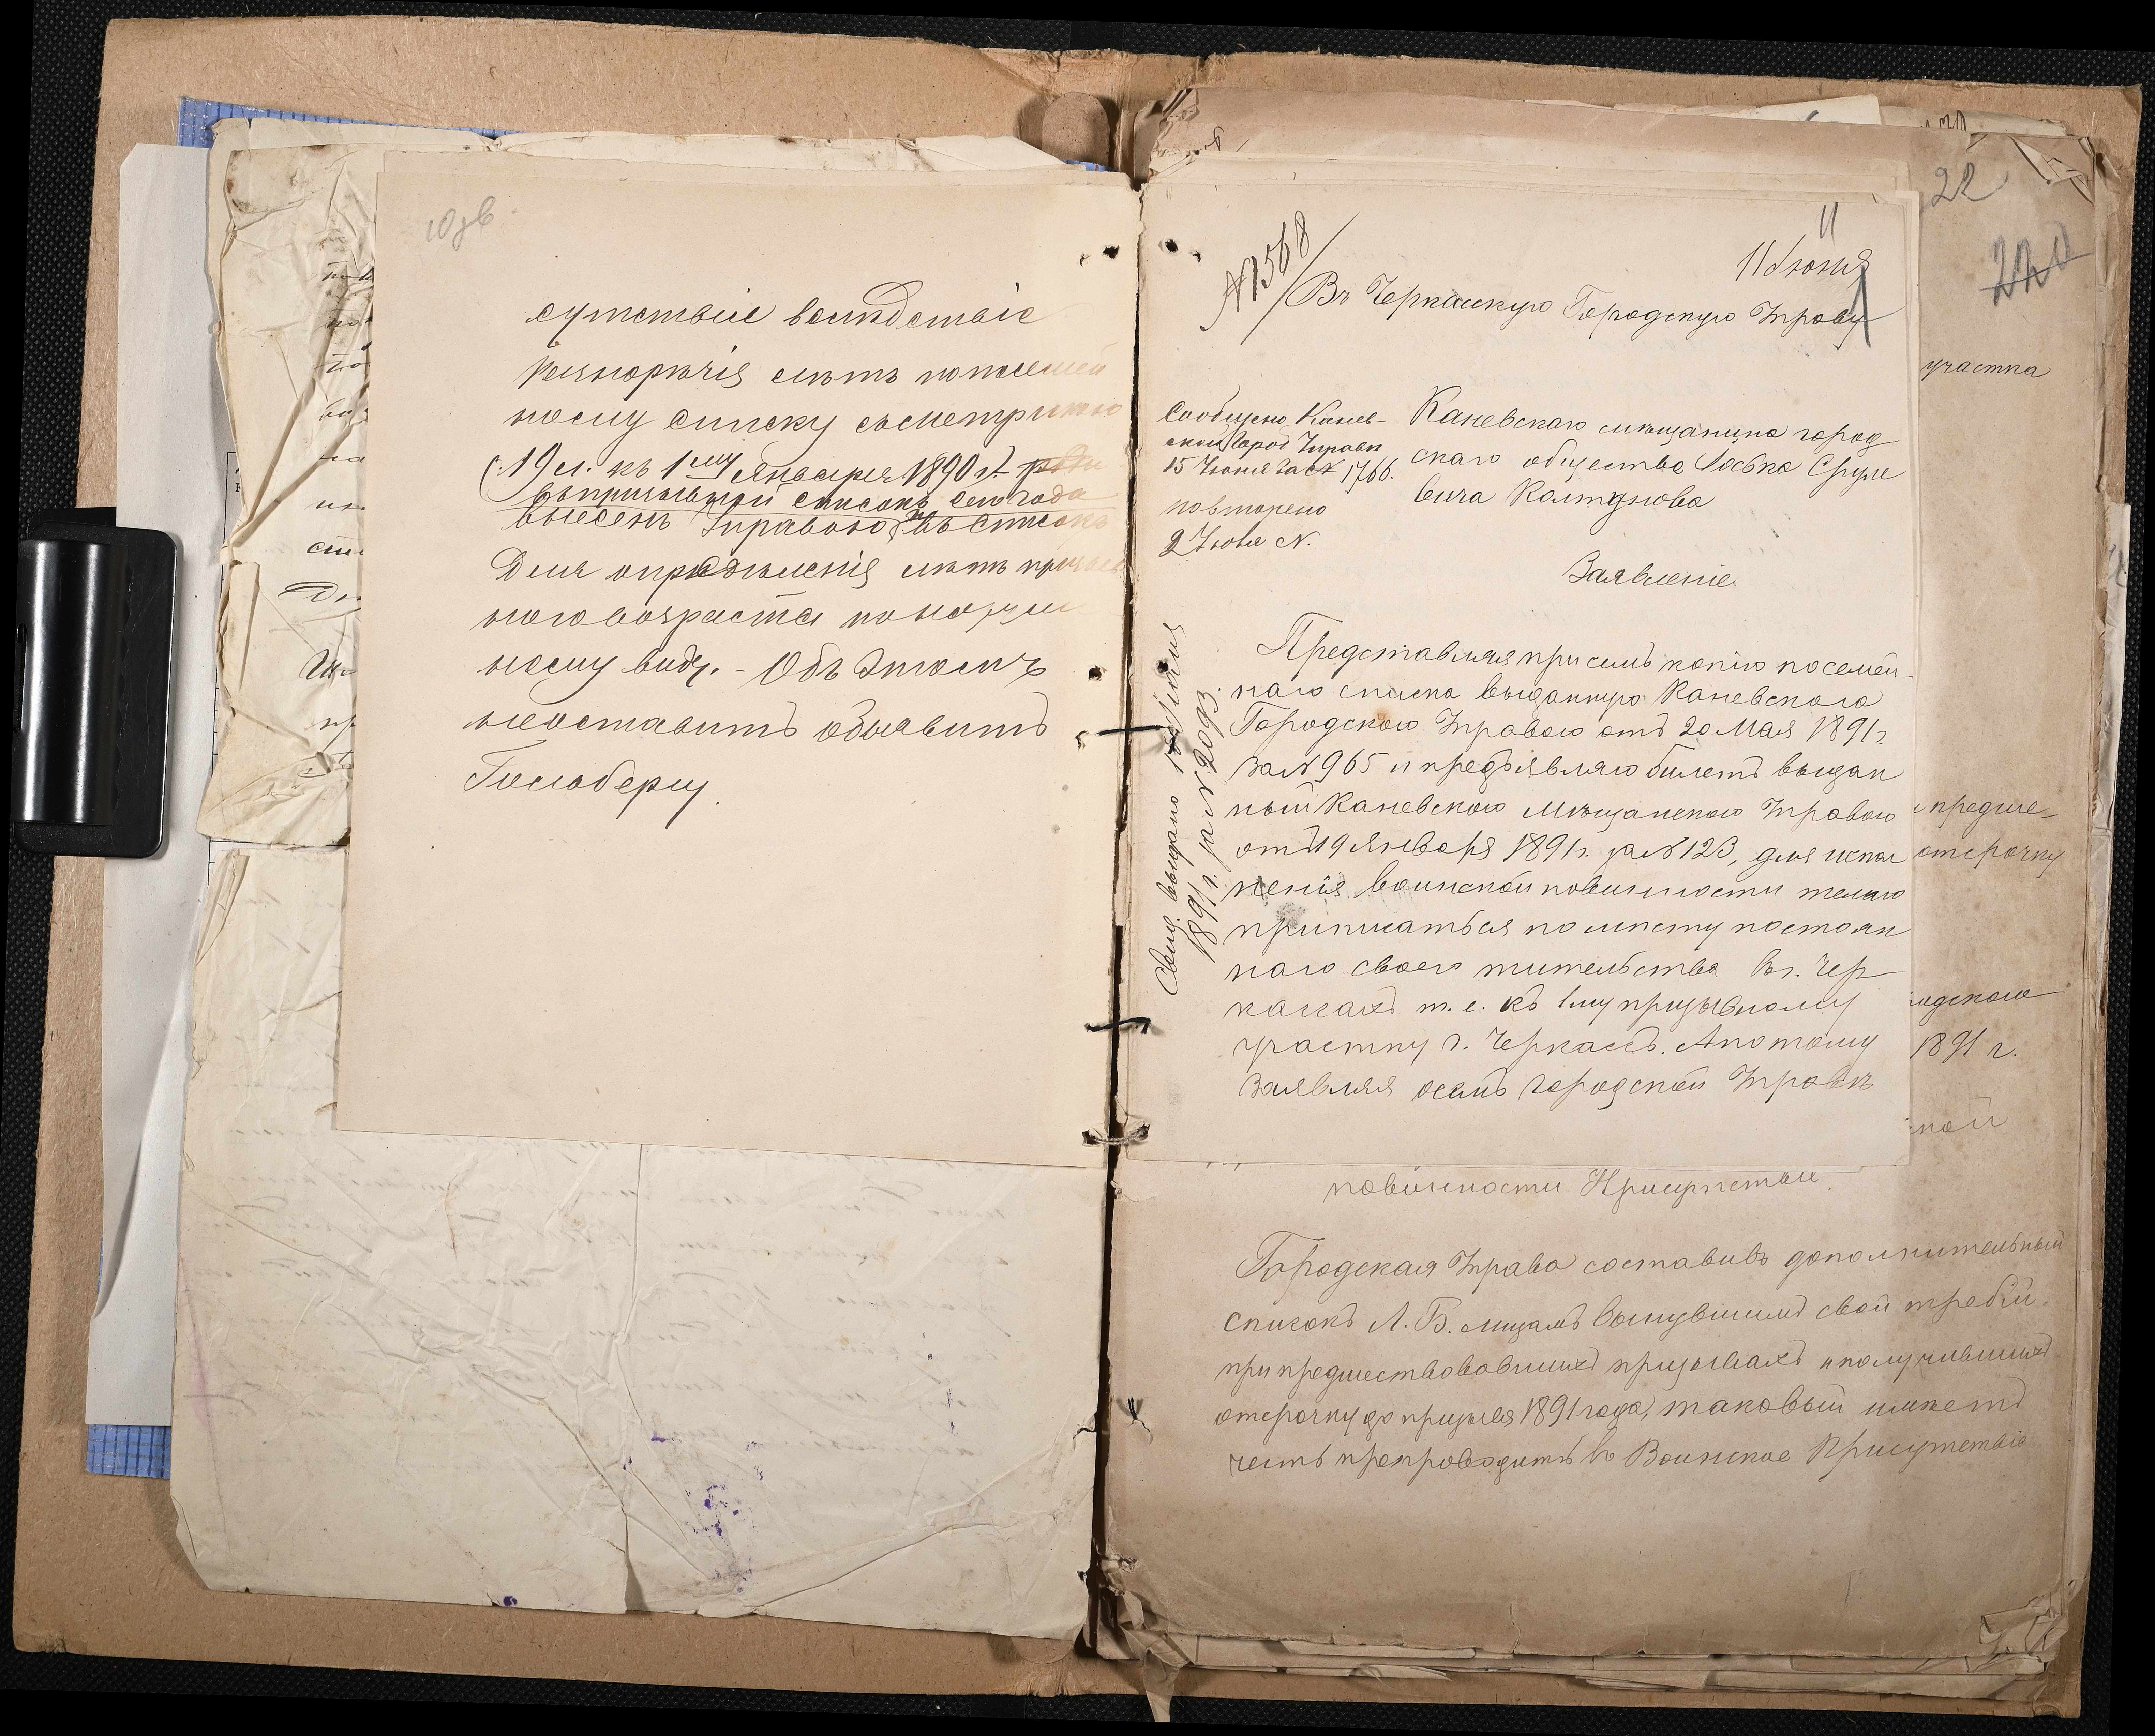 10 об
сутствіе вслѣдствіе
разнорѣчія лѣтъ по посемей
ному списку съ метрикою
(19 л. къ 1му Января 1890 г.)
въ призывной списокъ сего года
внесенъ Управою въ списокъ
Для опредѣленія лѣтъ призыв
ного возраста по наруж
ному виду. - Объ этомъ
неоставитъ объявить
Гольдбергу.
11
11 Іюня
№ 1568
Въ Черкасскую Городскую Управу
Сообщено Канев-
ской Город Управѣ
15 Іюня за № 1766.
повторено
2 Іюля №.
Каневскаго мѣщанина город
скаго общества Іосъка Сруле
вича Колтунова
Заявленіе
Свид. выдано Іюля
1891 г. за № 2093.
Представляя при семъ копію посемей-
наго списка выданную Каневского
Городского Управою отъ 20 Мая 1891 г.
за № 965 и предъявляю билетъ выдан
ный Каневского Мѣщанского Управою
отъ 19 Января 1891 г. за № 123, для испол
ненія воинской повинности желаю
приписаться по мѣсту постоян
наго своего жительства въ г. Чер
кассахъ т. е. къ 1му призывному
участку г. Черкассъ. А потому
заявляя о семъ городской Управѣ
22
220
участка
предше-
отсрочку
одского
1891 г.
ской
повинности Присутствіе.
Городская Управа составивъ дополнительный
списокъ Л. Б. лицамъ вынувшимъ свой жребій
при предшествовавшихъ призывахъ и получившихъ
отсрочку до призыва 1891 года, таковый имѣетъ
честь препроводить въ Воинское Присутствіе